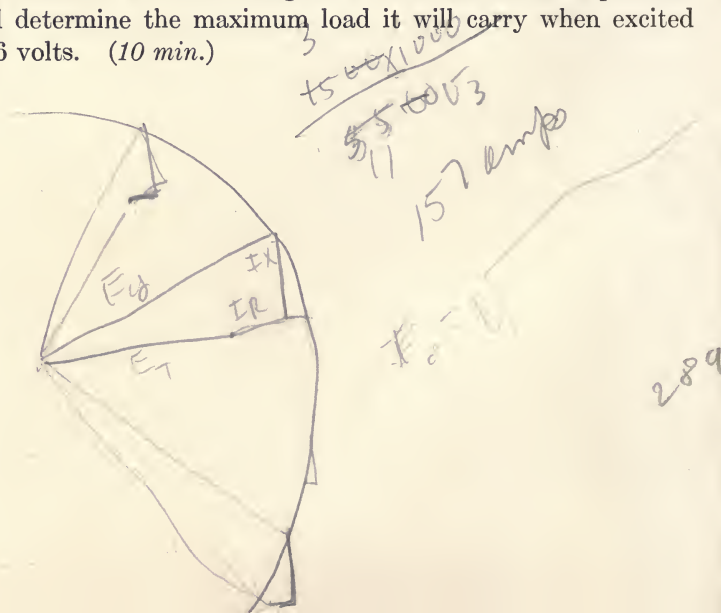 determine the maximum load it will carry when excited
6 volts. (10 min.)
3
1500×1000
5500√3
11
157 amps
IX
IR
E_T
289